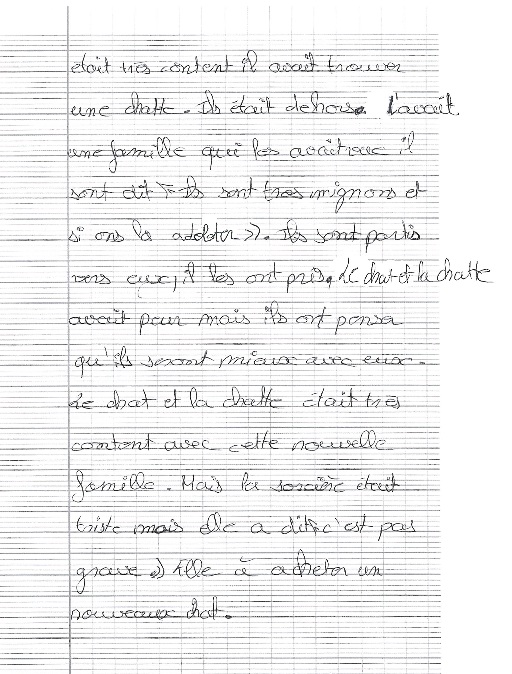 était très content il avait trouver
une chatte. Ils était dehors. l'avait
une famille qui les avait vue il
sont dit « Ils sont tres mignons et
si ons la adobter ». Ils sont partis
vers eux, il les ont pris. Le chat et la chatte
avait peur mais ils ont pensa
qu'ils seront mieux avec eux.
Le chat et la chatte était très
content avec cette nouvelle
famille. Mais la sorcière était
triste mais elle a dit « c'est pas
grave » Elle à acheter un
nouveaux chat.